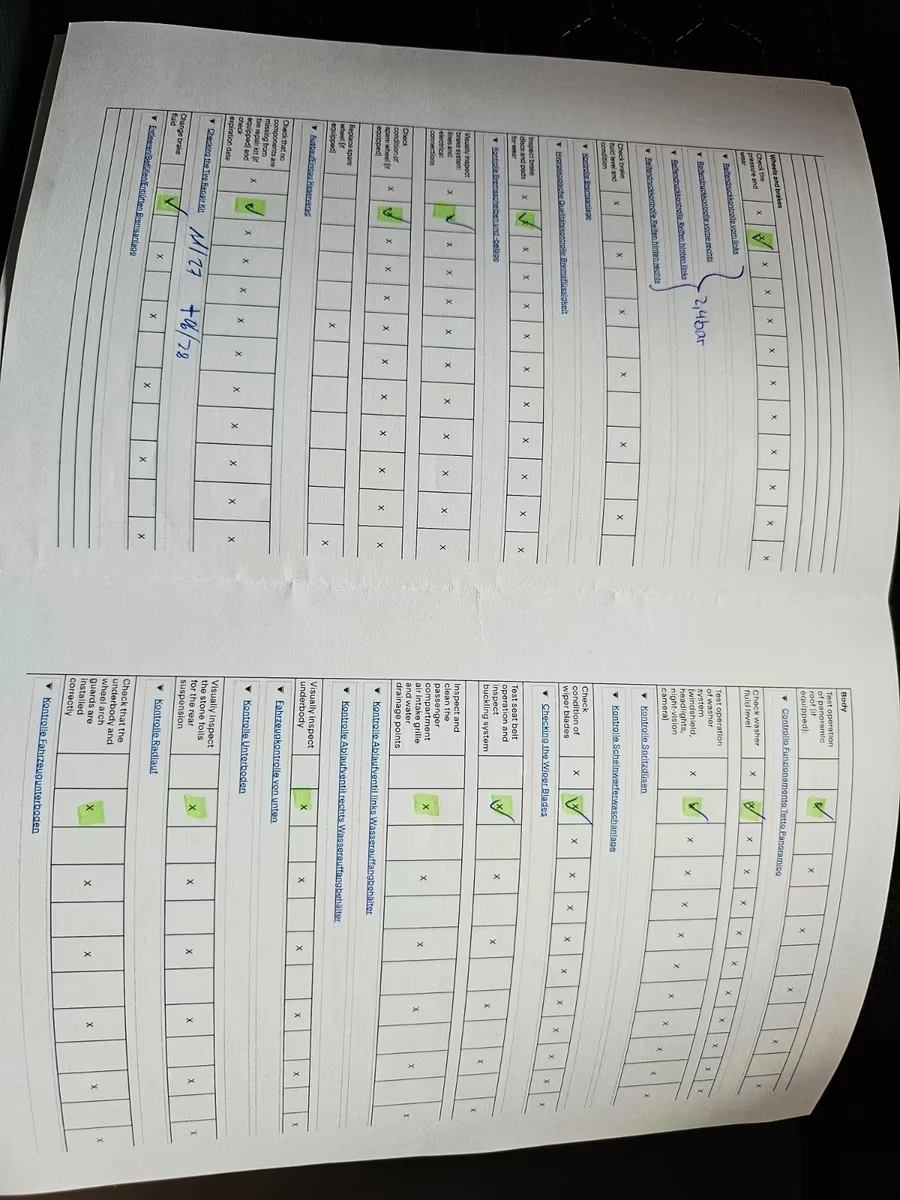 Wheels and brakes
Check tire
pressure and
wear
x x x x x x x x x x x x
▼ Reifendruckkontrolle vorn links
▼ Reifendruckkontrolle vorne rechts
▼ Reifendruckkontrolle Reifen hinten links
▼ Reifendruckkontrolle Reifen hinten rechts
2,4bar
Check brake
fluid level and
condition
x x x x x x
▼ Kontrolle Bremsanlage
▼ Chronologische Qualitätskontrolle Bremsflüssigkeit
Inspect brake
discs and pads
for wear
x x x x x x x x x x x
▼ Kontrolle Bremsscheiben und -beläge
Visually inspect
brake system
lines and
electrical
connections
x x x x x x x x x x x
Check
condition of
spare wheel (if
equipped)
x x x x x x x x x x
Replace spare
wheel (if
equipped)
x x
▼ Ausbau/Einbau Reserverad
Check that no
components are
missing from
tire repair kit (if
equipped) and
check
expiration date
x x x x x x x x x x
▼ Checking the Tire Repair Kit
11/27 +06/28
Change brake
fluid
x x x x x
▼ Entleeren/Befüllen/Entlüften Bremsanlage
Body
Test operation
of panoramic
roof (if
equipped):
x x x x x
▼ Controllo Funzionamento Tetto Panoramico
Check washer
fluid level
x x x x x x x x x x
Test operation
of washer
system
(windshield,
headlights,
night-vision
camera)
x x x x x x x x x x
▼ Kontrolle Spritzdüsen
▼ Kontrolle Scheinwerferwaschanlage
Check
condition of
wiper blades
x x x x x x x x x x
▼ Checking the Wiper Blades
Test seat belt
operation and
inspect
buckling system
x x x x x x
Inspect and
clean the
passenger
compartment
air intake grille
and water
drainage points
x x x x x x
▼ Kontrolle Ablaufventil links Wasserauffangbehälter
▼ Kontrolle Ablaufventil rechts Wasserauffangbehälter
Visually inspect
underbody
x x x x x x
▼ Fahrzeugkontrolle von unten
▼ Kontrolle Unterboden
Visually inspect
the stone foils
for the rear
suspension
x x x x x x
▼ Kontrolle Radlauf
Check that the
underbody and
wheel arch
guards are
installed
correctly
x x x x x x
▼ Kontrolle Fahrzeugunterboden